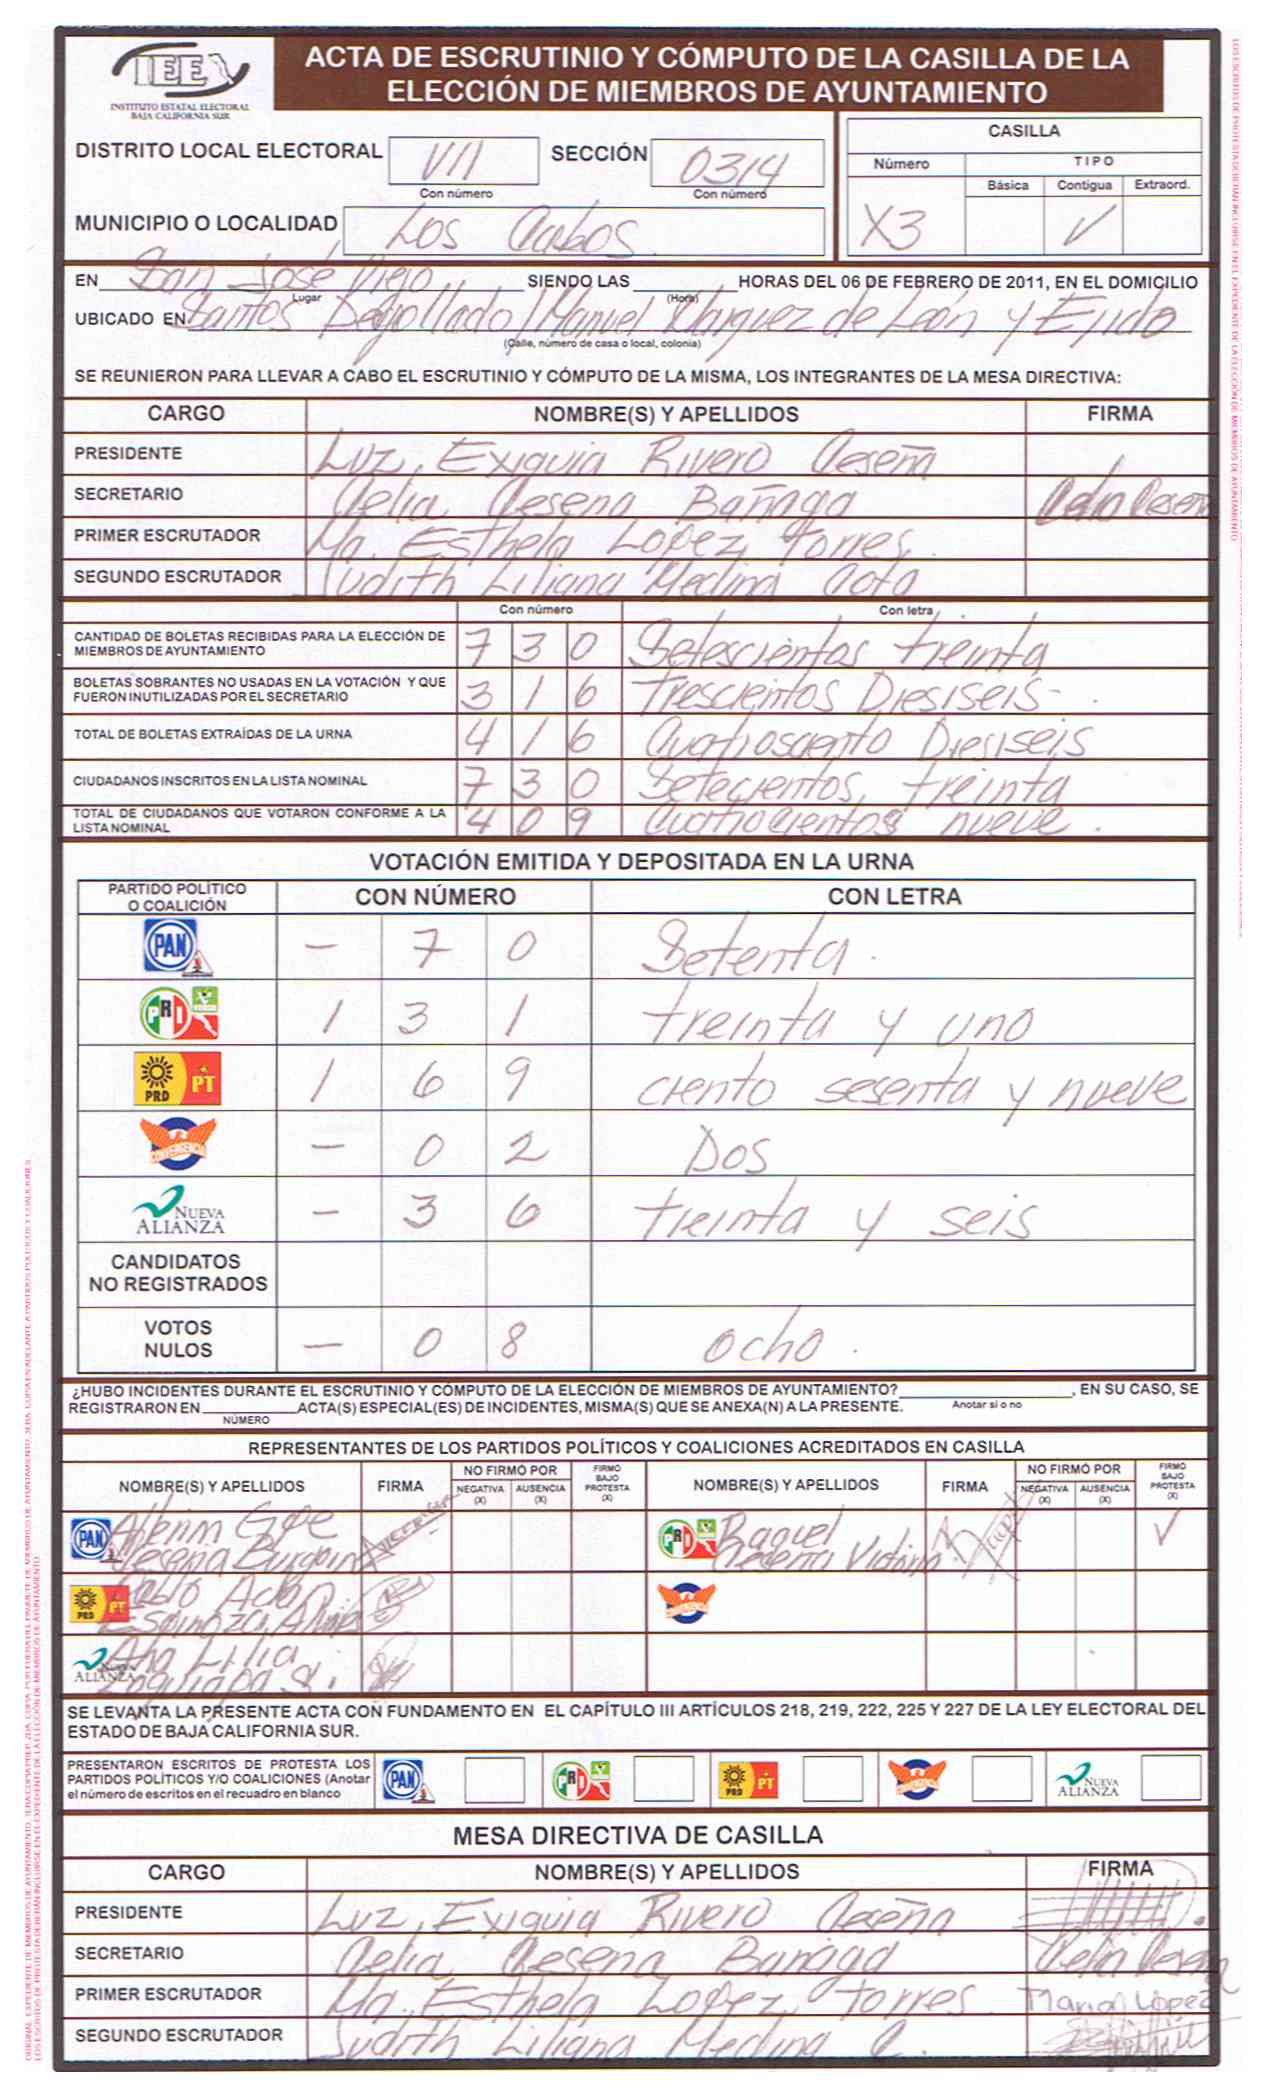 IEE
INSTITUTO ESTATAL ELECTORAL
BAJA CALIFORNIA SUR
ACTA DE ESCRUTINIO Y CÓMPUTO DE LA CASILLA DE LA
ELECCIÓN DE MIEMBROS DE AYUNTAMIENTO
DISTRITO LOCAL ELECTORAL VII SECCIÓN 0314
Con número Con número
MUNICIPIO O LOCALIDAD Los Cabos
CASILLA
Número TIPO
Básica Contigua Extraord.
X3 ✓
EN San José Viejo SIENDO LAS HORAS DEL 06 DE FEBRERO DE 2011, EN EL DOMICILIO
Lugar (Hora)
UBICADO EN Santos Degollado, Manuel Marquez de León y Ejido
(Calle, número de casa o local, colonia)
SE REUNIERON PARA LLEVAR A CABO EL ESCRUTINIO Y CÓMPUTO DE LA MISMA, LOS INTEGRANTES DE LA MESA DIRECTIVA:
CARGO NOMBRE(S) Y APELLIDOS FIRMA
PRESIDENTE Luz Exiquia Rivero Ceseña
SECRETARIO Celia Cesena Bañaga Celia Ceseña
PRIMER ESCRUTADOR Ma. Esthela Lopez Torres
SEGUNDO ESCRUTADOR Judith Liliana Medina Cota
Con número Con letra
CANTIDAD DE BOLETAS RECIBIDAS PARA LA ELECCIÓN DE
MIEMBROS DE AYUNTAMIENTO 730 Setescientos treinta
BOLETAS SOBRANTES NO USADAS EN LA VOTACIÓN Y QUE
FUERON INUTILIZADAS POR EL SECRETARIO 316 Trescientos Diesiseis
TOTAL DE BOLETAS EXTRAÍDAS DE LA URNA 416 Cuatrosciento Diesiseis
CIUDADANOS INSCRITOS EN LA LISTA NOMINAL 730 Setecientos, treinta
TOTAL DE CIUDADANOS QUE VOTARON CONFORME A LA
LISTA NOMINAL 409 Cuatrocientos nueve.
VOTACIÓN EMITIDA Y DEPOSITADA EN LA URNA
PARTIDO POLÍTICO
O COALICIÓN CON NÚMERO CON LETRA
PAN – 7 0 Setenta.
PRI VERDE 1 3 1 treinta y uno
PRD PT 1 6 9 ciento sesenta y nueve
CONVERGENCIA – 0 2 Dos
NUEVA ALIANZA – 3 6 treinta y seis
CANDIDATOS
NO REGISTRADOS
VOTOS
NULOS – 0 8 ocho.
¿HUBO INCIDENTES DURANTE EL ESCRUTINIO Y CÓMPUTO DE LA ELECCIÓN DE MIEMBROS DE AYUNTAMIENTO? , EN SU CASO, SE
REGISTRARON EN ACTA(S) ESPECIAL(ES) DE INCIDENTES, MISMA(S) QUE SE ANEXA(N) A LA PRESENTE. Anotar si o no
NÚMERO
REPRESENTANTES DE LOS PARTIDOS POLÍTICOS Y COALICIONES ACREDITADOS EN CASILLA
NOMBRE(S) Y APELLIDOS FIRMA NO FIRMÓ POR NEGATIVA (X) AUSENCIA (X) FIRMÓ BAJO PROTESTA (X) NOMBRE(S) Y APELLIDOS FIRMA NO FIRMÓ POR NEGATIVA (X) AUSENCIA (X) FIRMÓ BAJO PROTESTA (X)
PAN Ceseña PRI Raquel ✓
PRD PT CONVERGENCIA
NUEVA ALIANZA Ana Lilia
SE LEVANTA LA PRESENTE ACTA CON FUNDAMENTO EN EL CAPÍTULO III ARTÍCULOS 218, 219, 222, 225 Y 227 DE LA LEY ELECTORAL DEL
ESTADO DE BAJA CALIFORNIA SUR.
PRESENTARON ESCRITOS DE PROTESTA LOS
PARTIDOS POLÍTICOS Y/O COALICIONES (Anotar
el número de escritos en el recuadro en blanco
PAN PRI PRD PT CONVERGENCIA NUEVA ALIANZA
MESA DIRECTIVA DE CASILLA
CARGO NOMBRE(S) Y APELLIDOS FIRMA
PRESIDENTE Luz Exiquia Rivero Ceseña
SECRETARIO Celia Cesena Bañaga Celia Ceseña
PRIMER ESCRUTADOR Ma. Esthela Lopez Torres Maria López
SEGUNDO ESCRUTADOR Judith Liliana Medina C.